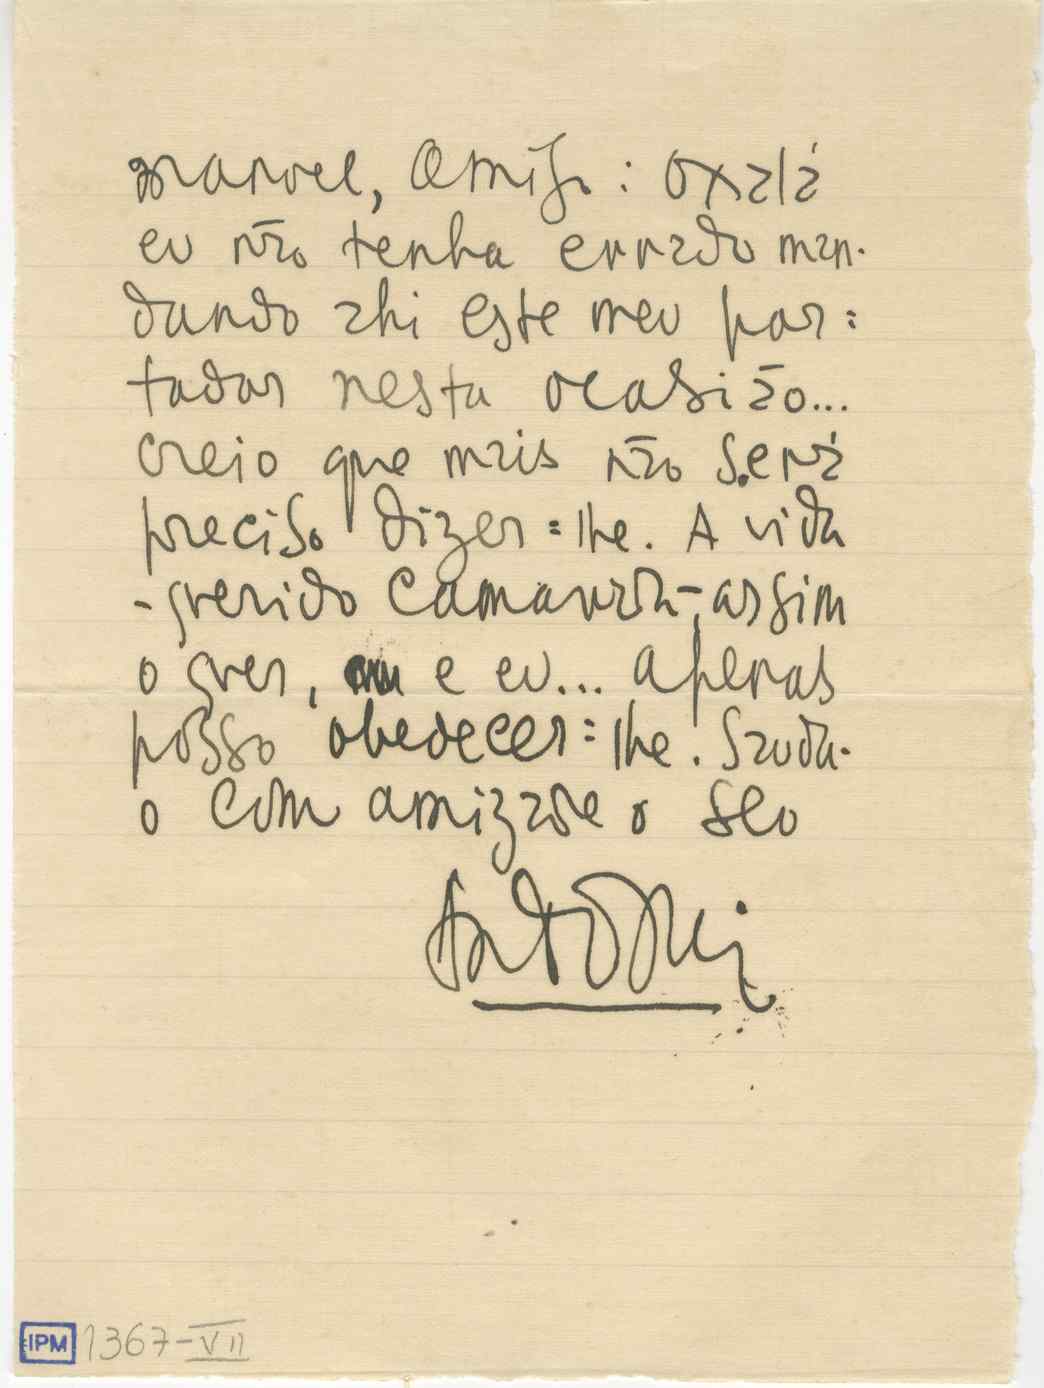 Manoel, Amigo: Oxalá
eu não tenha errado man-
dando ahi este meu por=
tador nesta ocasião...
Creio que mais não será
preciso dizer=lhe. A vida
-querido Camarada-, assim
o quer, e eu... apenas
posso obedecer=lhe. Sauda-
o com amizade o seu
IPM 1367-VII